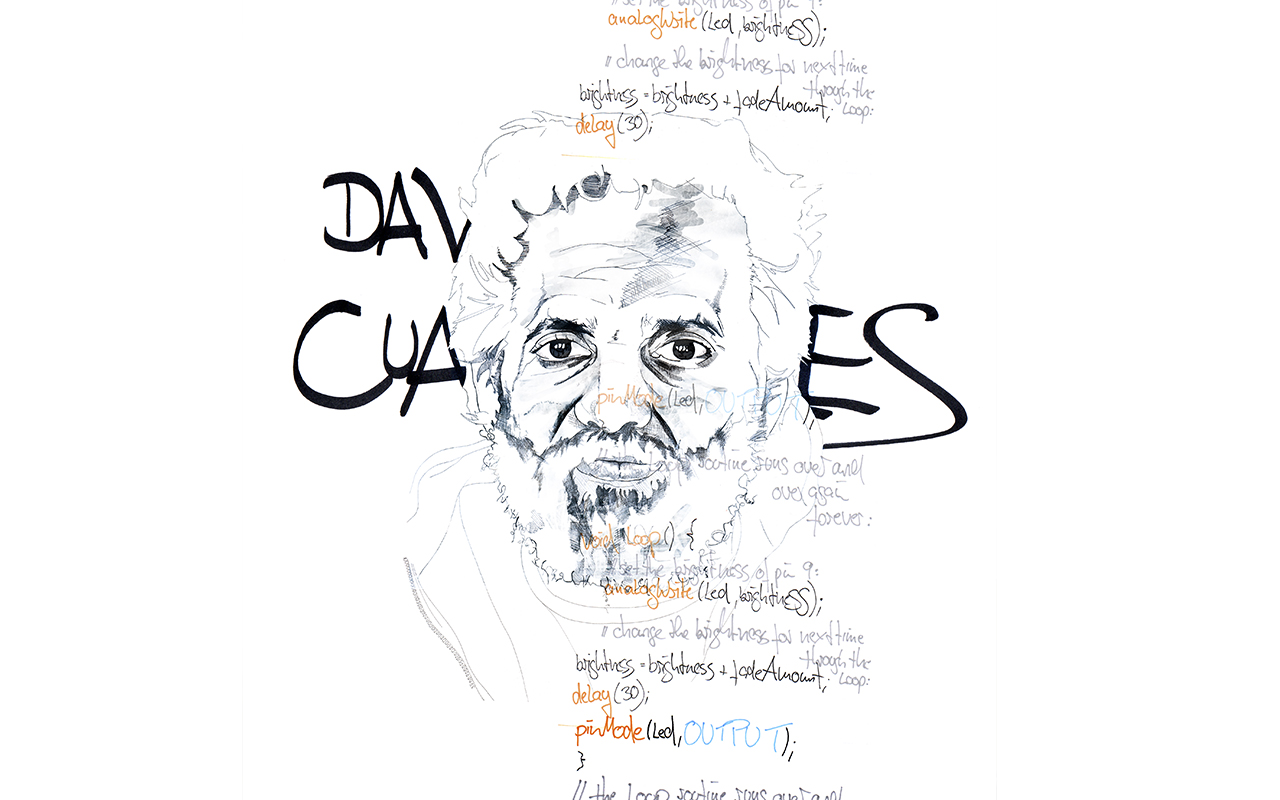 // set the brightness of pin 9:
analogWrite (Led, brightness);
// change the brightness for next time
through the
brightness = brightness + fadeAmount; Loop:
delay (30);
DAV
CUA ES
pinMode (Led, OUTPUT);
Loop routine runs over and
over again
forever:
void Loop() {
// set the brightness of pin 9:
analogWrite (Led, brightness);
// change the brightness for next time
through the
brightness = brightness + fadeAmount; Loop:
delay (30);
pinMode (Led, OUTPUT);
}
// the Loop routine runs over and